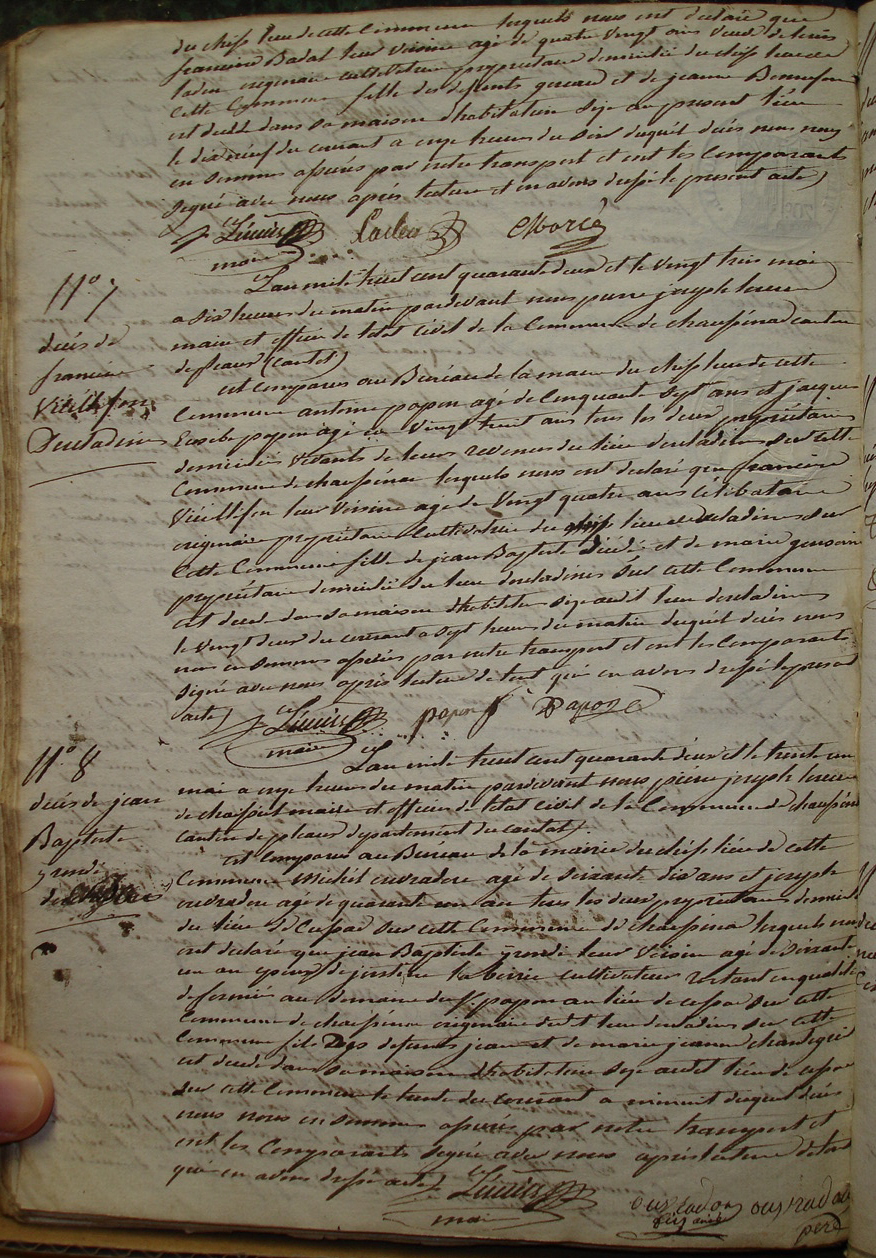 du chef lieu de cette Commune lesquels nous ont declaré que
francoise Badal leur voisine agé de quatre vingt ans veuve de
originaire cultivatrice propriétaire domicilié du chef lieu de
Cette Commune fille des defunts geraud et de jeanne Bonnefon
est decedé dans sa maison d'habitation sise au present lieu
le dix neuf du courant a onze heures du soir duquel décés nous nous
en sommes assurés par notre transport et ont les Comparants
signé avec nous aprés lecture et en avons dressé le present acte
maire
N° 7
decés de
francoise
Vieillefon
D'estadines
L'an mil huit cent quarante deux et le vingt trois mai
a six heures du matin pardevant nous pierre joseph
maire et officier de l'etat civil de la Commune de chaussenac canton
de pleaux (Cantal)
est comparus au Bureau de la mairie du chef lieu de cette
Commune antoine papon agé de Cinquante sept ans et jacques
Eusebe papon agé de vingt huit ans tous les deux propriétaires
domiciliés vivants de leurs revenus du lieu d'estadines sur cette
Commune de chaussenac lesquels nous ont declaré que francoise
Vieillefon leur voisine agé de vingt quatre ans Celibataire
originaire propriétaire Cultivatrice du lieu d'estadines sur
Cette Commune fille de jean Baptiste et de marie
propriétaire domicilié du lieu d'estadines sur cette Commune
est decedé dans sa maison d'habitation sise audit lieu d'estadines
le vingt deux du courant a sept heures du matin duquel décés nous
nous en sommes assurés par notre transport et ont les Comparants
signé avec nous aprés lecture de tout quoi en avons dressé le present
acte
maire
papon Papon
N° 8
decés de jean
Baptiste
L'an mil huit cent quarante deux et le trente un
mai a onze heures du matin pardevant nous pierre joseph
maire et officier de l'etat civil de la Commune de chaussenac
canton de pleaux departement du cantal
est comparus au Bureau de la mairie du chef lieu de cette
Commune Michel ouvradou agé de soixante dix ans et joseph
ouvradou agé de quarante un an tous les deux propriétaires domiciliés
du lieu de Cussac sur cette Commune de chaussenac lesquels nous
ont declaré que jean Baptiste leur voisin agé de soixante
un an epoux de cultivateur restant en qualité
de fermier au domaine du Sr papon au lieu de cussac sur cette
Commune de chaussenac originaire du lieu d'estadines sur cette
Commune fils des defunts jean et de marie jeanne
est decedé dans sa maison d'habitation sise audit lieu de cussac
sur cette Commune le trente du courant a minuit duquel décés
nous nous en sommes assurés par notre transport et
ont les Comparants signé avec nous aprés lecture de tout
quoi en avons dressé acte
ouvradou ouvradou
pere